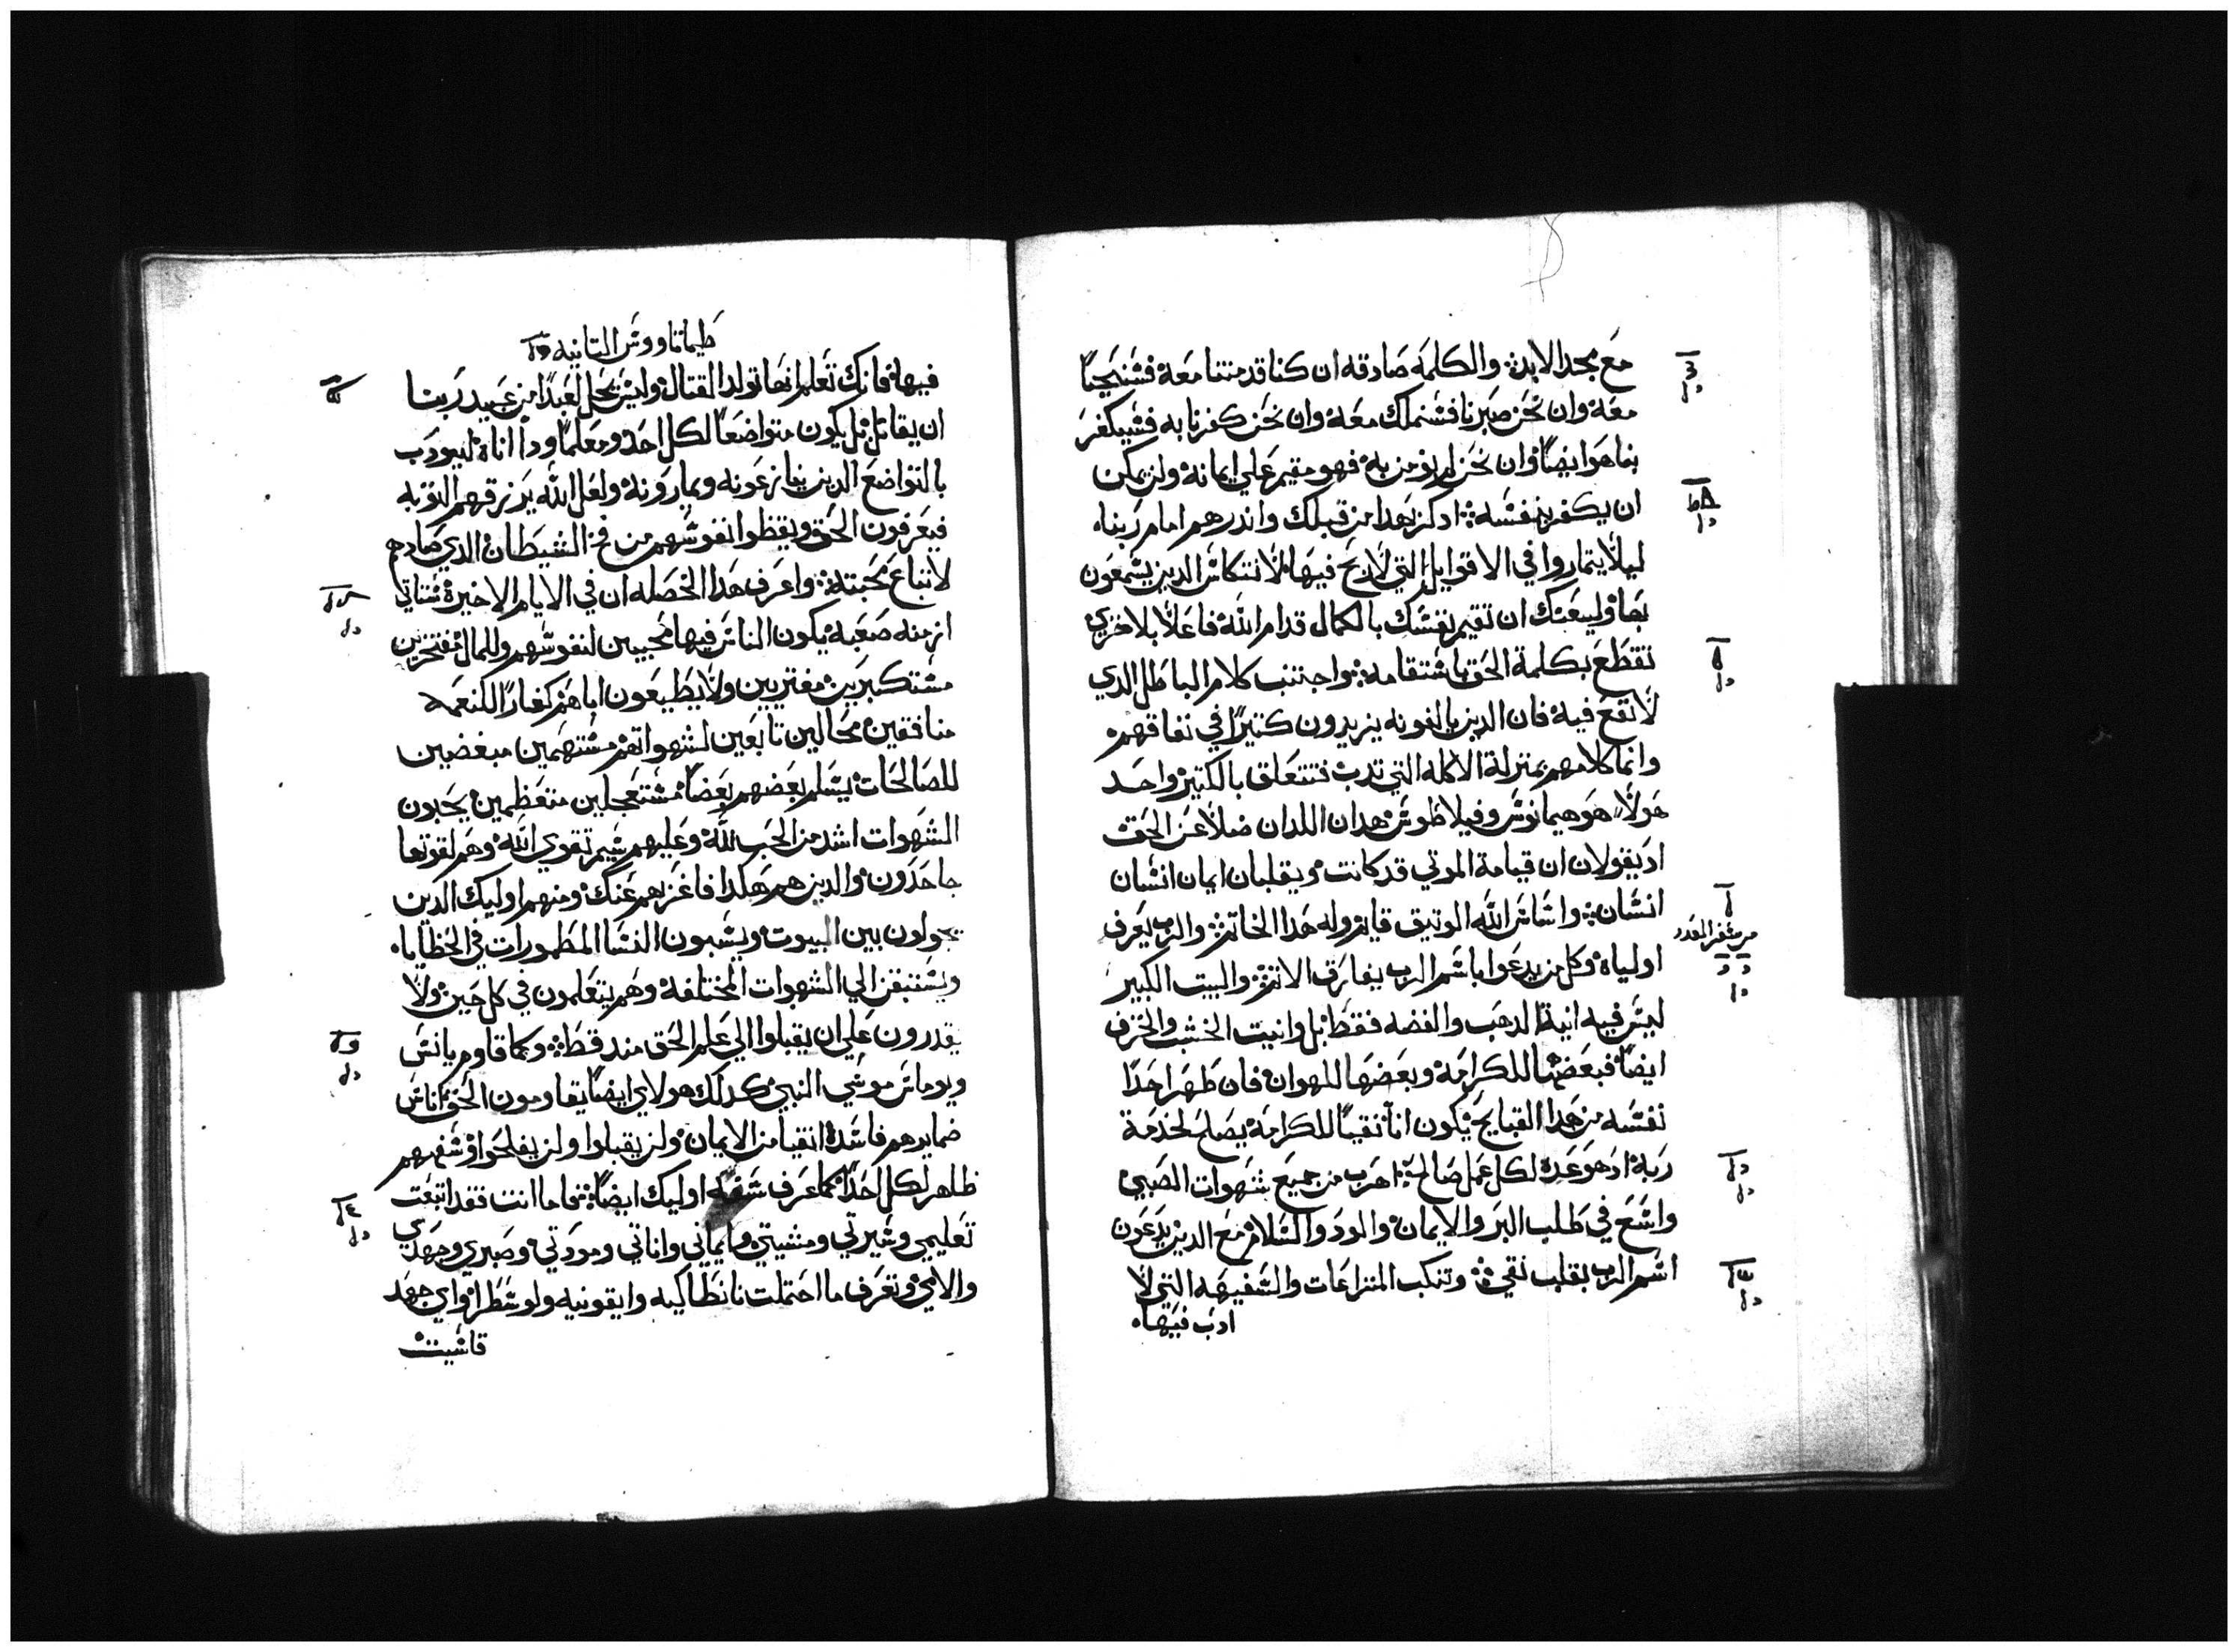 مع مجد الابد۞ والكلمة صادقه ان كنا قد متنا معه فسنحيا
معه وان نحن صبرنا فسنملك معه وان نحن كفرنا به فسيكفر
بنا هو ايضا وان نحن لم نومن به فهو مقيم علي ايمانه ولن يمكن
ان يكفر بنفسه۞ ادكر بهدا من قبلك واندرهم امام ربنا
ليلا يتماروا في الاقوايل التي لا ربح فيها لانتكاس الدين يسمعون
بها وليعنك ان تقيم نفسك بالكمال قدام الله فاعلا بلا خزي
تقطع بكلمة الحق باستقامه۞ واجتنب كلام الباطل الدي
لا نفع فيه فان الدين يالفونه يزيدون كتيرا في نفاقهم
وانما كلامهم بمنزلة الاكله التي تدب فتتعلق بالكتير واحد
هولاء هو هيمانوس وفيلاطوس هدان اللدان ضلا عن الحق
اد يقولان ان قيامة الموتي قد كانت ويقلبان ايمان انسان
انسان۞ واساس الله الوتيق قايم وله هدا الخاتم والرب يعرف
اولياه وكل من يدعوا باسم الرب يفارق الاتم والبيت الكبير
ليس فيه انية الدهب والفضه فقط بل وانيت الخشب والخزف
ايضا فبعضها للكرامه وبعضها للهوان فان طهر احدا
نفسه من هدا القبايح يكون انا نقيا للكرامه يصلح لخدمة
ربه اد هو عده لكل عمل صالح۞ اهرب من جميع شهوات الصبي
واسع في طلب البر والايمان والود والسلام مع الدين يدعون
اسم الرب بقلب نقي۞ وتنكب المنزاعات والسفيهه التي لا
ادب فيها
من سفر العدد
طيماتاووس التانيه
فيها فانك تعلم انها تولد القتال وليس يحل لعبدا من عبيد ربنا
ان يقاتل بل يكون متواضعا لكل احد ومعلما ودا اناة ليودب
بالتواضع الدين ينازعونه ويمارونه ولعل الله يرزقهم التوبه
فيعرفون الحق ويقظوا نفوسهم من فخ الشيطان الدي صادهم
لاتباع محبته۞ واعرف هدا الخصله ان في الايام الاخيرة ستاتي
ازمنه صعبه يكون الناس فيها محبين لنفوسهم وللمال مفتخرين
مستكبرين مفتريين ولا يطيعون اباهم كفارا لكنعمه
منافقين محالين تابعين لشهواتهم مستهمين مبغضين
للصالحات يسلم بعضهم بعضا مستعجلين متعظمين يحبون
الشهوات اشد من الحب لله وعليهم شيم تقوي الله وهم لقوتها
جاحدون والدين هم هكدا فاعزهم عنك ومنهم اوليك الدين
يجولون بين البيوت ويسبون النسا المطمورات في الخطايا
ويستبقن الي الشهوات المختلفه وهم يتعلمون في كل حين ولا
يقدرون علي ان يقبلوا الي علم الحق مند قط۞ وكما قاوم يانس
ويوماس موسي النبي كدلك هولاي ايضا يقاومون الحق اناس
ضمايرهم فاسدة انقيا من الايمان ولن يقبلوا ولن يفلحوا وسفههم
ظاهر لكل احدا كما عرف سفه اوليك ايضا۞ فاما انت فقد اتبعت
تعليمي وسيرتي ومشيتي وايماني واناتي ومودتي وصبري وجهدي
والامي وتعرف ما احتملت نانطاكيه وايقونيه ولوسطرا واي جهد
قاسيت